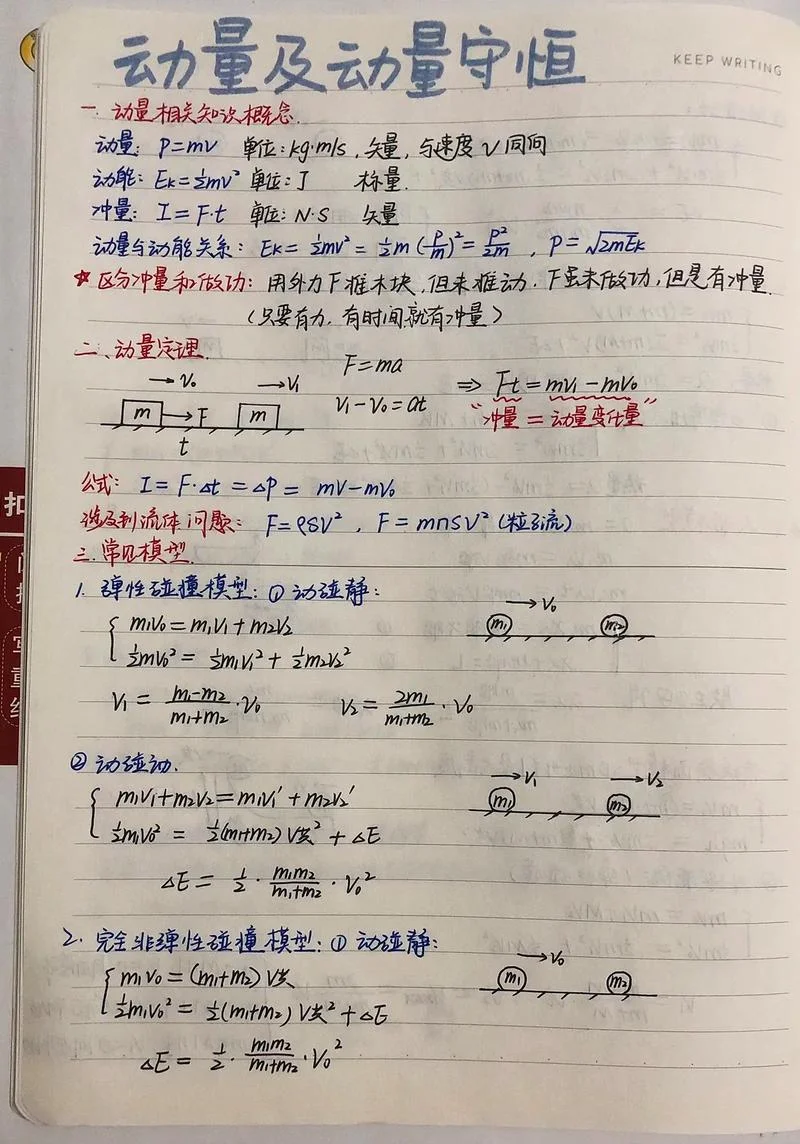 动量及动量守恒
KEEP WRITING
一. 动量相关知识概念.
动量: P=mv 单位: kg·m/s, 矢量, 与速度v同向
动能: Ek=½mv² 单位: J 标量.
冲量: I=F·t 单位: N·S 矢量
动量与动能关系: Ek=½mv²=½m(P/m)²=P²/2m , P=√2mEk
☆ 区分冲量和做功: 用外力F推木块, 但未推动. F虽未做功, 但是有冲量.
(只要有力, 有时间, 就有冲量)
二、动量定理.
F=ma
→v₀ →v₁
v₁-v₀=at
⇒ Ft=mv₁-mv₀
m →F m
"冲量=动量变化量"
t
公式: I=F·△t=△P=mv-mv₀
涉及到流体问题: F=ρSV² , F=mnSV²(粒子流)
三. 常见模型.
1. 弹性碰撞模型: ① 动碰静:
→v₀
m₁ m₂
m₁v₀=m₁v₁+m₂v₂
½mv₀²=½m₁v₁²+½m₂v₂²
v₁=(m₁-m₂)/(m₁+m₂)·v₀ v₂=2m₁/(m₁+m₂)·v₀
② 动碰动.
→v₁ →v₂
m₁ m₂
m₁v₁+m₂v₂=m₁v₁′+m₂v₂′
½m₁v₀²=½(m₁+m₂)v共²+△E
△E=½·m₁m₂/(m₁+m₂)·v₀²
2. 完全非弹性碰撞模型: ① 动碰静:
→v₀
m₁ m₂
m₁v₀=(m₁+m₂)v共
½m₁v₀²=½(m₁+m₂)v共²+△E
△E=½·m₁m₂/(m₁+m₂)·v₀²